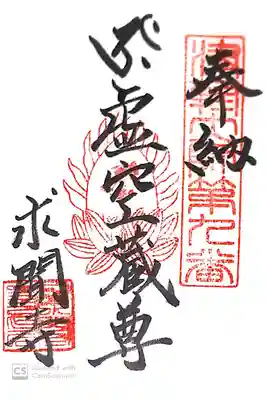 奉納
虚空蔵尊
求聞寺
第九番
CS Scanned with CamScanner